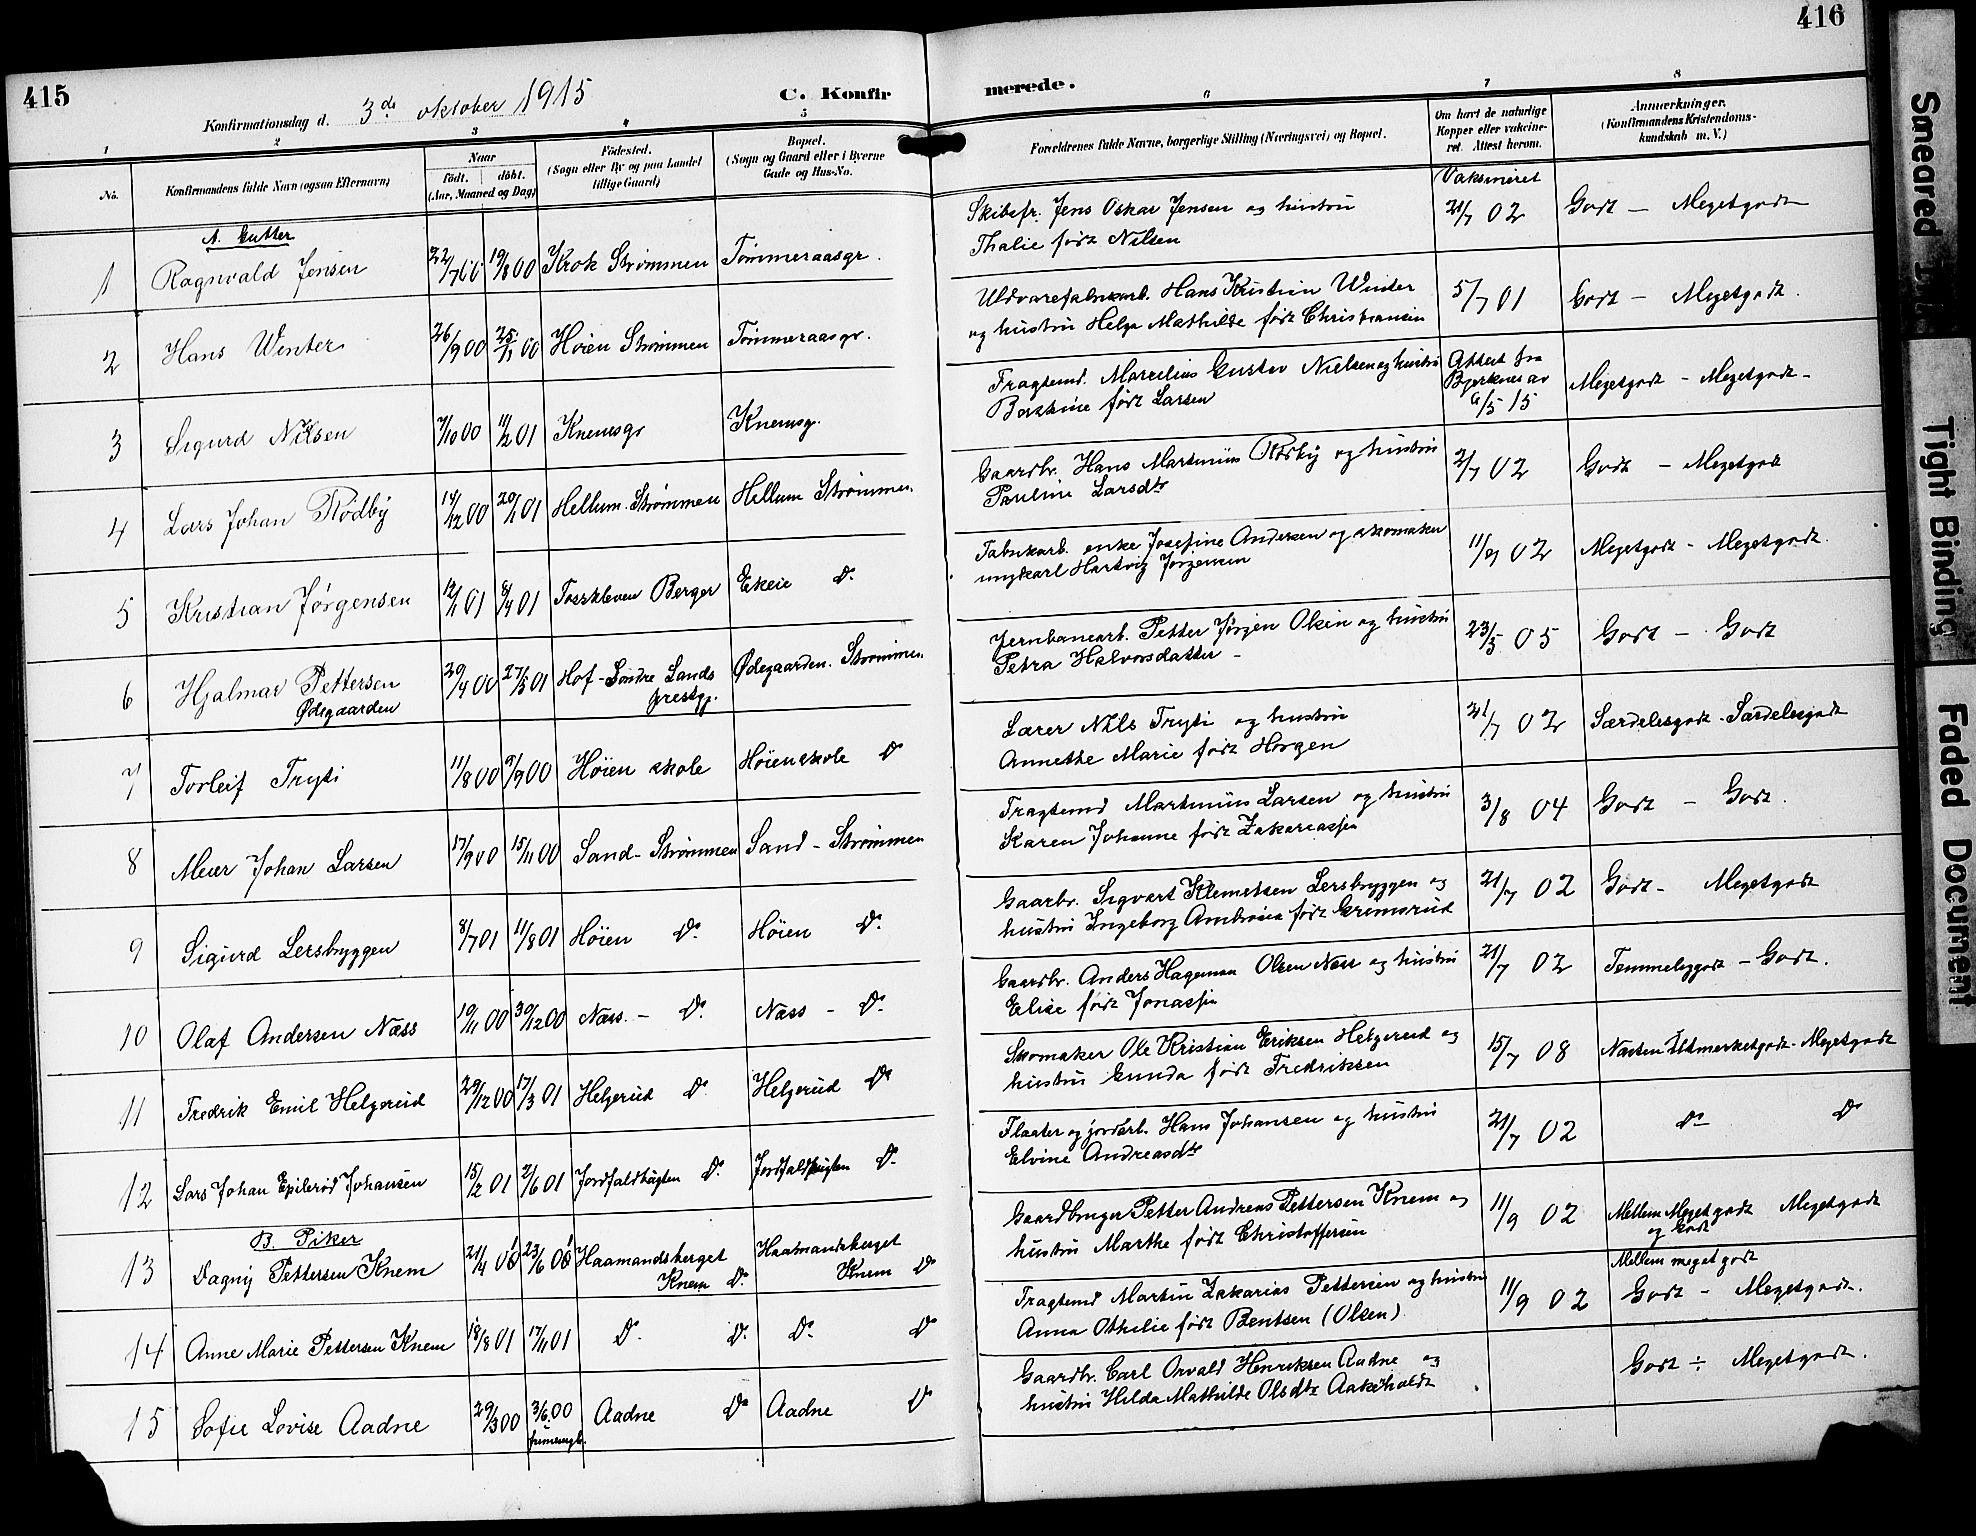 415
Konfirmationsdag d. 3de oktober 1915
C. Konfir
1
2
3
4
5
No.
Konfirmandens fulde Navn (ogsaa Efternavn)
Naar
født. døbt.
(Aar, Maaned og Dag)
Fødested.
(Sogn eller By og paa Landet
tillige Gaard)
Bopæl.
(Sogn og Gaard eller i Byerne
Gade og Hus-No.
A. Gutter
1 Ragnvald Jensen 22/7 00 19/8 00 Krok Strømmen Tømmeraasgr.
2 Hans Winter 26/9 00 25/ 00 Høien Strømmen Tømmeraasgr.
3 Sigurd Nilsen 7/10 00 11/2 01 Knemsgr Knemsg.
4 Lars Johan Rødby 14/12 00 20/1 01 Hellum. Strømmen Hellum Strømmen.
5 Kristian Jørgensen 12/1 01 8/4 01 Berger Ekeie Do.
6 Hjalmar Pettersen 20/4 00 27/5 01 Hof - Søndre Lands Ødegaarden. Strømmen.
Ødegaarden prestgj.
7 Torleif Tryti 11/8 00 9/9 00 Høien skole Høienskole Do
8 Meier Johan Larsen 17/9 00 15/11 00 Sand - Strømmen Sand - Strømmen
9 Sigurd Lersbryggen 8/7 01 11/8 01 Høien Do. Høien Do.
10 Olaf Andersen Næss 10/11 00 30/12 00 Næss. - Do. Næss - Do.
11 Fredrik Emil Helgerud 29/12 00 17/3 01 Helgerud Do. Helgerud Do.
12 Lars Johan Epilerød Johansen 15/2 01 2/6 01 Jordfaldhugten Do. Jordfaldhugten Do.
B. Piker
13 Dagny Pettersen Knem 21/4 23/6 Haamandsberget Haamandsberget
Knem Do. Knem Do
14 Anne Marie Pettersen Knem 18/8 01 17/11 01 Do. Do. Do. Do
15 Sofie Lovise Aadne 29/3 00 3/6 00 Aadne Do Aadne Do
416
merede.
6
7
8
Forældrenes fulde Navne, borgerlige Stilling (Næringsvei) og Bopæl.
Om havt de naturlige
Kopper eller vakcine-
ret. Attest herom.
Anmærkninger.
(Konfirmandens Kristendoms-
kundskab m. V.)
Vaksineret
Skibsfr. Jens Oskar Jensen og hustru 21/7 02 Godt - Megetgodt
Thalie født Nilsen
Uldvarefabrikarb. Hans Kristian Winter 5/7 01 Godt - Megetgodt.
og hustru Helga Mathilde født Christiansen
Fragtemd. Marcelius Gustav Nielsen og hustru Attest fra
Bjerknes av Megetgodt - Megetgodt -
født Larsen 6/5 15
Gaardbr. Hans Martinius Rødby og hustru 2/7 02 Godt - Megetgodt
Pauline Larsdtr
Fabrikarb. enke Josefine Andersen og skomaker 11/9 02 Megetgodt - Megetgodt.
ungkarl Hartvig Jørgensen
Jernbanearb. Petter Jørgen Olsen og hustru 23/5 05 Godt - Godt
Petra Halvorsdatter -
Lærer Nils Tryti og hustru 21/7 02 Særdelesgodt - Særdelesgodt
Annethe Marie født Horgen
Fragtemd Martinius Larsen og hustru 3/8 04 Godt - Godt.
Karen Johanne født Zakariassen
Gaarbr. Sigvart Klemetsen Lersbryggen og 21/7 02 Godt - Megetgodt
hustru Ingeborg Ambrosia født Gremsrud
Gaardbr. Anders Hageman Olsen Næss og hustru 21/7 02 Temmeliggodt - Godt.
Elise født Jonassen
Skomaker Ole Kristian Eriksen Helgerud og 15/7 08 Næsten Utmerketgodt - Megetgodt
hustru Gunda født Fredriksen
Flaater og jordarb. Hans Johansen og hustru 21/7 02 Do Do
Elvine Andreasdtr
Gaardbruger Petter Andreas Pettersen Knem og 11/9 02 Mellem Megetgodt Megetgodt
og Godt
hustru Marthe født Christoffersen
Mellem meget godt
Fragtemd Martin Zakarias Pettersen og hustru 11/9 02 Godt - Megetgodt.
Anna Othilie født Bentsen (Olsen)
Gaardbr. Carl Orvald Henriksen Aadne og Godt ÷ Megetgodt.
hustru Hilda Mathilde Olsdtr Aakeholdt
Smeared Ink
Tight Binding
Faded Document